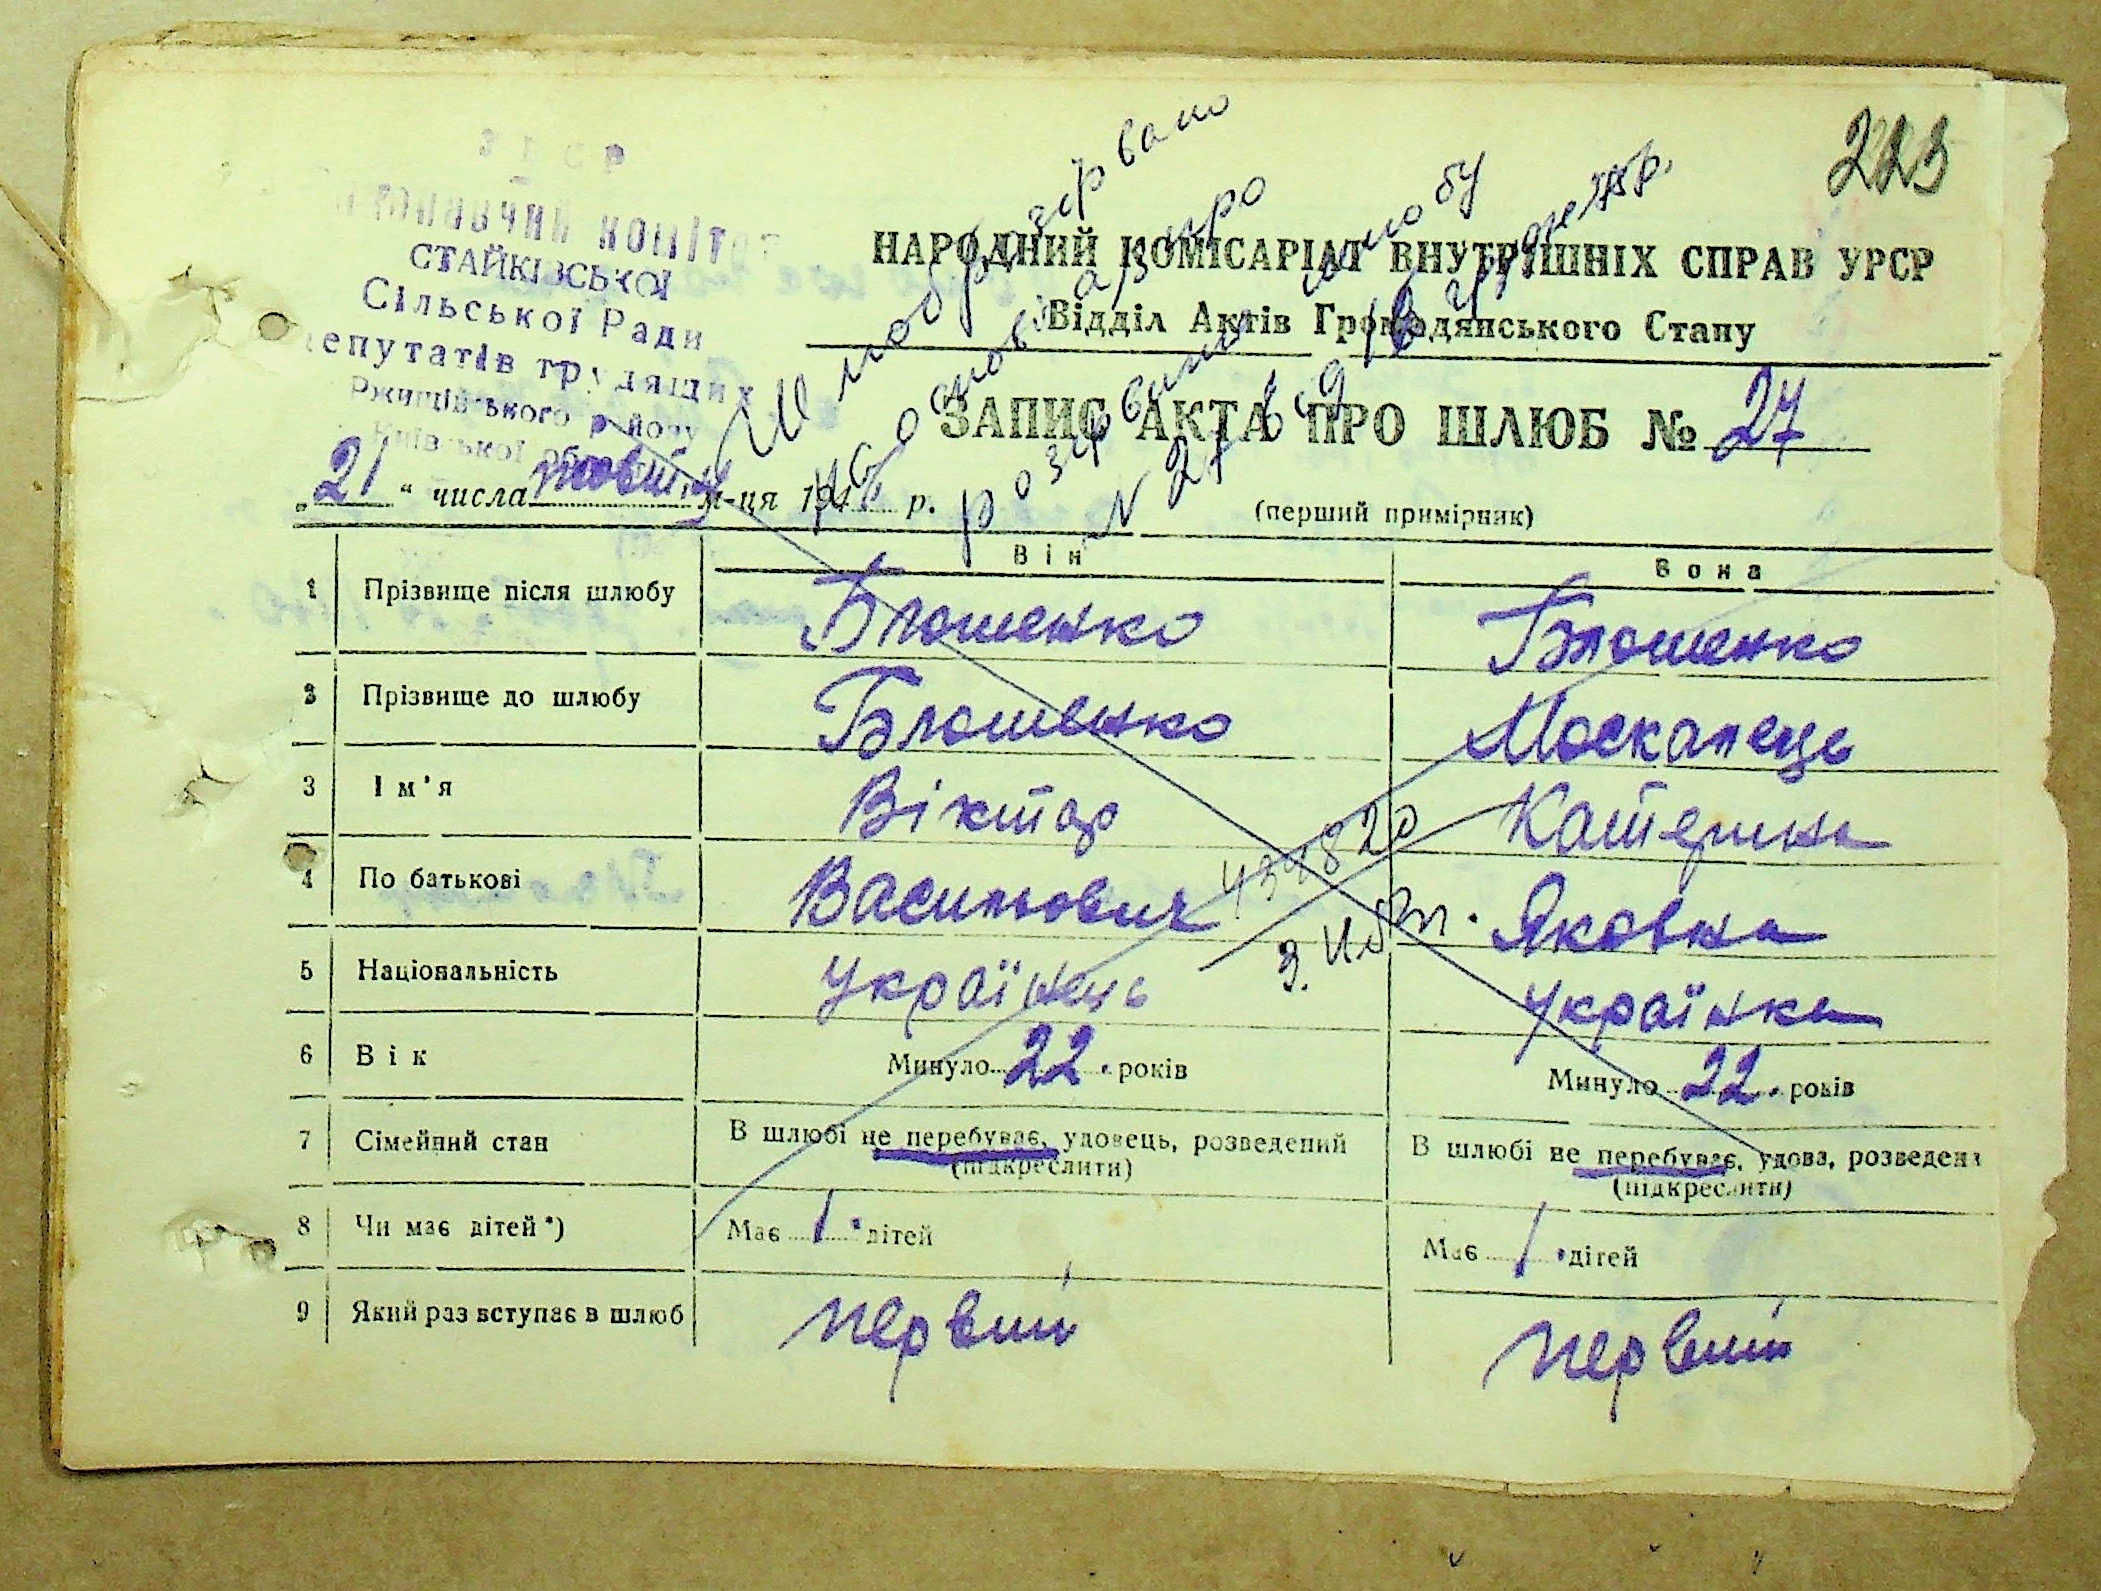 223
УРСР
Виконавчий комітет
СТАЙКІВСЬКОЇ
Сільської Ради
депутатів трудящих
Ржищівського району
Київської області
НАРОДНИЙ КОМІСАРІАТ ВНУТРІШНІХ СПРАВ УРСР
Відділ Актів Громадянського Стану
ЗАПИС АКТА ПРО ШЛЮБ № 27
„21“ числа жовтня м-ця 194 р.
(перший примірник)
Шлюб розірвано
на основі про
розірвання шлюбу
N 27 від 18 грудня р.
Він Вона
1 Прізвище після шлюбу Блошенко Блошенко
2 Прізвище до шлюбу Блошенко Москалець
3 Ім'я Віктор Катерина
4 По батькові Васильович Яковна
439820
5 Національність Українець Українка
6 Вік Минуло 22 років Минуло 22 років
7 Сімейний стан В шлюбі не перебуває, удовець, розведений В шлюбі не перебуває, удова, розведена
(підкреслити) (підкреслити)
8 Чи має дітей*) Має 1 дітей Має 1 дітей
9 Який раз вступає в шлюб первий первий